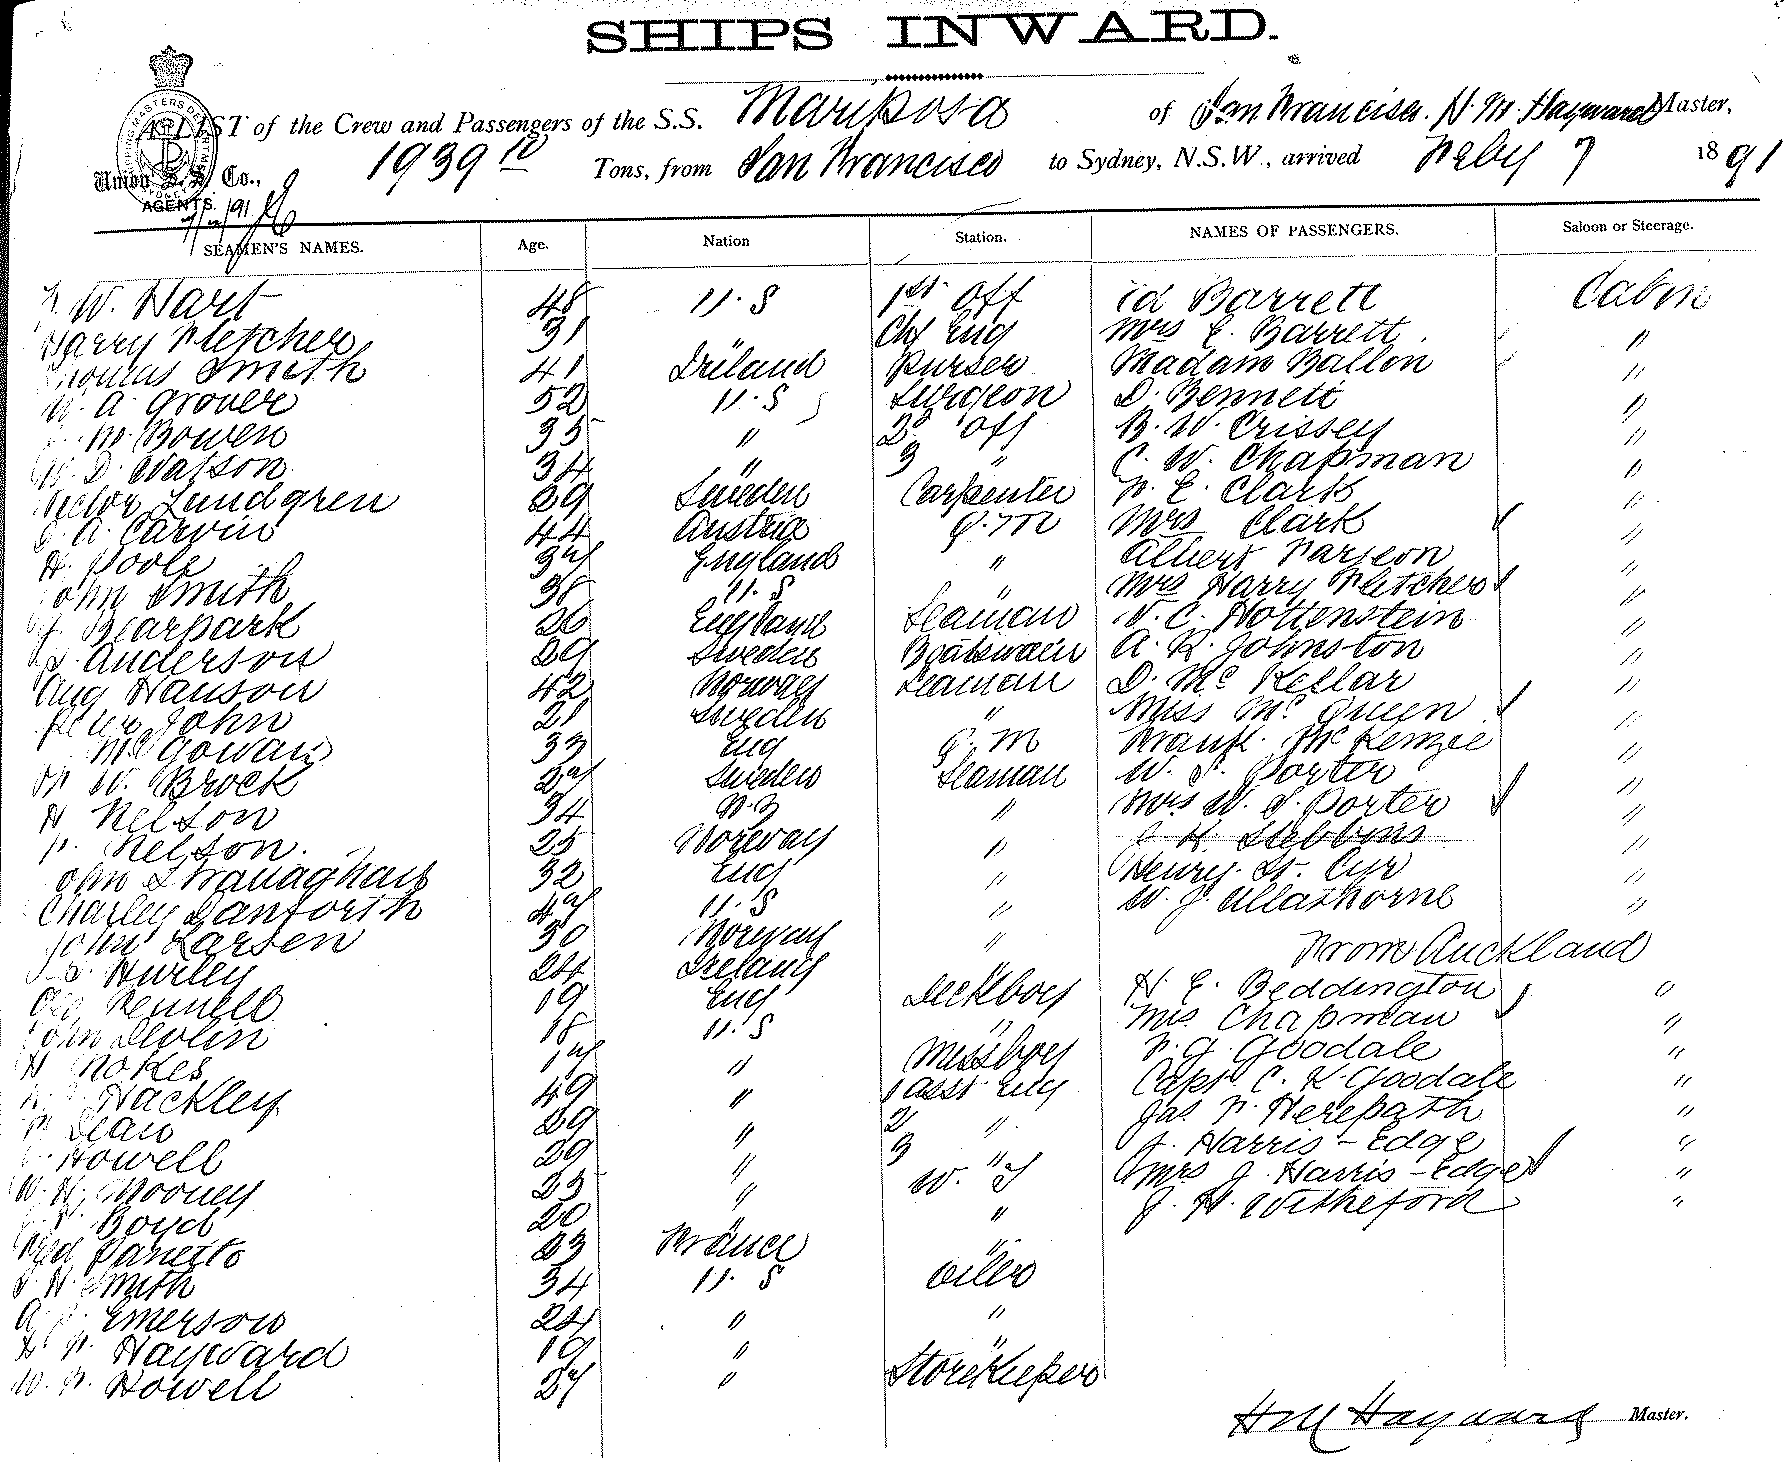 SHIPS INWARD.
A LIST of the Crew and Passengers of the S.S. Mariposa of San Francisco. H. M. Hayward Master,
Union S.S. Co., 1939 10 Tons, from San Francisco to Sydney, N.S.W., arrived Feby 7 1891
AGENTS.
SEAMEN'S NAMES. Age. Nation Station. NAMES OF PASSENGERS. Saloon or Steerage.
W. Hart 48 U.S 1st Off Ed Barrett Cabin
Harry Fletcher 31 " Chf Eng Mrs E. Barrett "
Thomas Smith 41 Ireland Purser Madam Ballon "
A. Grover 52 U.S Surgeon D. Bennett "
M. Bowen 35 " 2d Off B. W. Crissey "
W. D. Watson 34 " 3 " C. W. Chapman "
Victor Lundgren 29 Sweden Carpenter F. E. Clark "
A. Carvin 44 Austria Q.M Mrs Clark "
H. Poole 37 England " Albert Farseon "
John Smith 38 U.S " Mrs Harry Fletcher "
J. Bearpark 26 England Seaman W. C. Hottenstein "
Anderson 29 Sweden Boatswain A. R. Johnston "
Aug Hanson 42 Norway Seaman D. Mc Kellar "
Peter John 21 Sweden " Miss Mc Queen "
McGowan 33 Eng Q.M Frank Mc Kenzie "
W. Brock 27 Sweden Seaman W. S. Porter "
H Nelson 34 N.Z " Mrs W. S. Porter "
F. Nelson. 25 Norway " J H Stebbins "
John Stranaghan 32 Eng " Henry St. Cyr "
Charley Danforth 47 U.S " W. J. Ullathorne "
John Larsen 30 Norway " From Auckland
Hurley 24 Ireland " H. E. Beddington "
Geo Fennell 19 Eng Deckboy Mrs Chapman "
John Devlin 18 U.S " F. G. Goodale "
H Nokes 17 " Messboy Capt C. K. Goodale "
Hackley 49 " 1 asst Eng Jas F. Herepath "
F. Dean 29 " 2 " J. Harris-Edge "
Howell 29 " 3 " Mrs J. Harris-Edge "
W. H. Mooney 23 " W. T J. H. Witheford "
Boyd 20 " "
Fred Panetto 23 France "
H Smith 34 U.S Oiler
A Emerson 24 " "
F. Hayward 19 " "
W. F. Howell 27 " Storekeeper
H M Hayward Master.